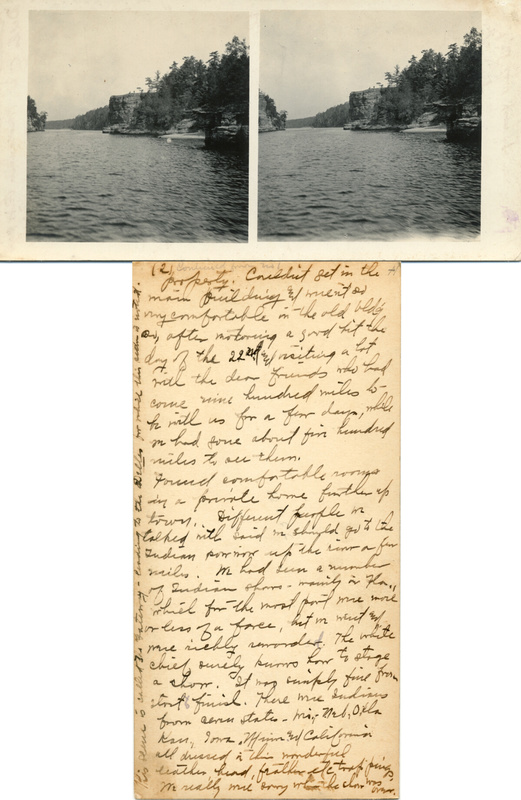 (2)
property. Couldn't get in the
main building & went so
comfortable in the old bldg.
so, after motoring a good bit the
day of the 22nd & visiting a lot
with the dear friends who had
come nine hundred miles to
be with us for a few days, while
we had gone about five hundred
miles to see them.
Found comfortable rooms
in a private home further up
town. Different people we
talked with said we should go to the
Indian pow wow up the river a few
miles. We had seen a number
of Indian shows - mainly in Fla.,
which for the most part were more
or less of a farce, but we went &
were richly rewarded. The white
chief surely knows how to stage
a show. It was simply fine from
start finish. There were Indians
from seven states - Wis., Neb, Okla
Kan, Iowa, & California
all dressed in this wonderful
leather, head, feather, etc trappings.
We really were sorry when the show was
over.
This scene is called the Gateway - leading to the Dells for which this section is noted.